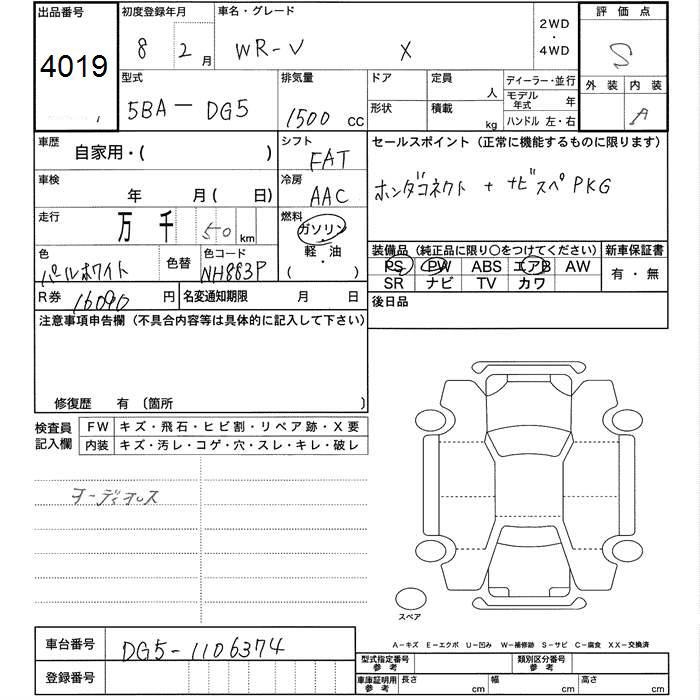 出品番号
4019
初度登録年月
8 2月
車名・グレード
WR-V X
2WD
・
4WD
評価点
S
外装 内装
A
型式
5BA-DG5
排気量
1500cc
ドア
形状
定員 人
積載 kg
ディーラー・並行
モデル年式 年
ハンドル 左・右
車歴
自家用・( )
シフト
FAT
セールスポイント(正常に機能するものに限ります)
ホンダコネクト + ナビスペPKG
車検
年 月( 日)
冷房
AAC
走行
万 千 50 km
燃料
ガソリン
軽・油
( )
色
パールホワイト
色替
色コード
NH883P
装備品(純正品に限り○をつけてください)
PS PW ABS エアB AW
SR ナビ TV カワ
新車保証書
有・無
R券
16090円
名変通知期限 月 日
後日品
注意事項申告欄(不具合内容等は具体的に記入して下さい)
修復歴 有 〔箇所 〕
検査員記入欄
FW キズ・飛石・ヒビ割・リペア跡・X要
内装 キズ・汚レ・コゲ・穴・スレ・キレ・破レ
オーディオレス
スペア
A-キズ E-エクボ U-凹み W-補修跡 S-サビ C-腐食 XX-交換済
車台番号
DG5-1106374
登録番号
型式指定番号参考
類別区分番号参考
車庫証明用参考
長さ cm 幅 cm 高さ cm